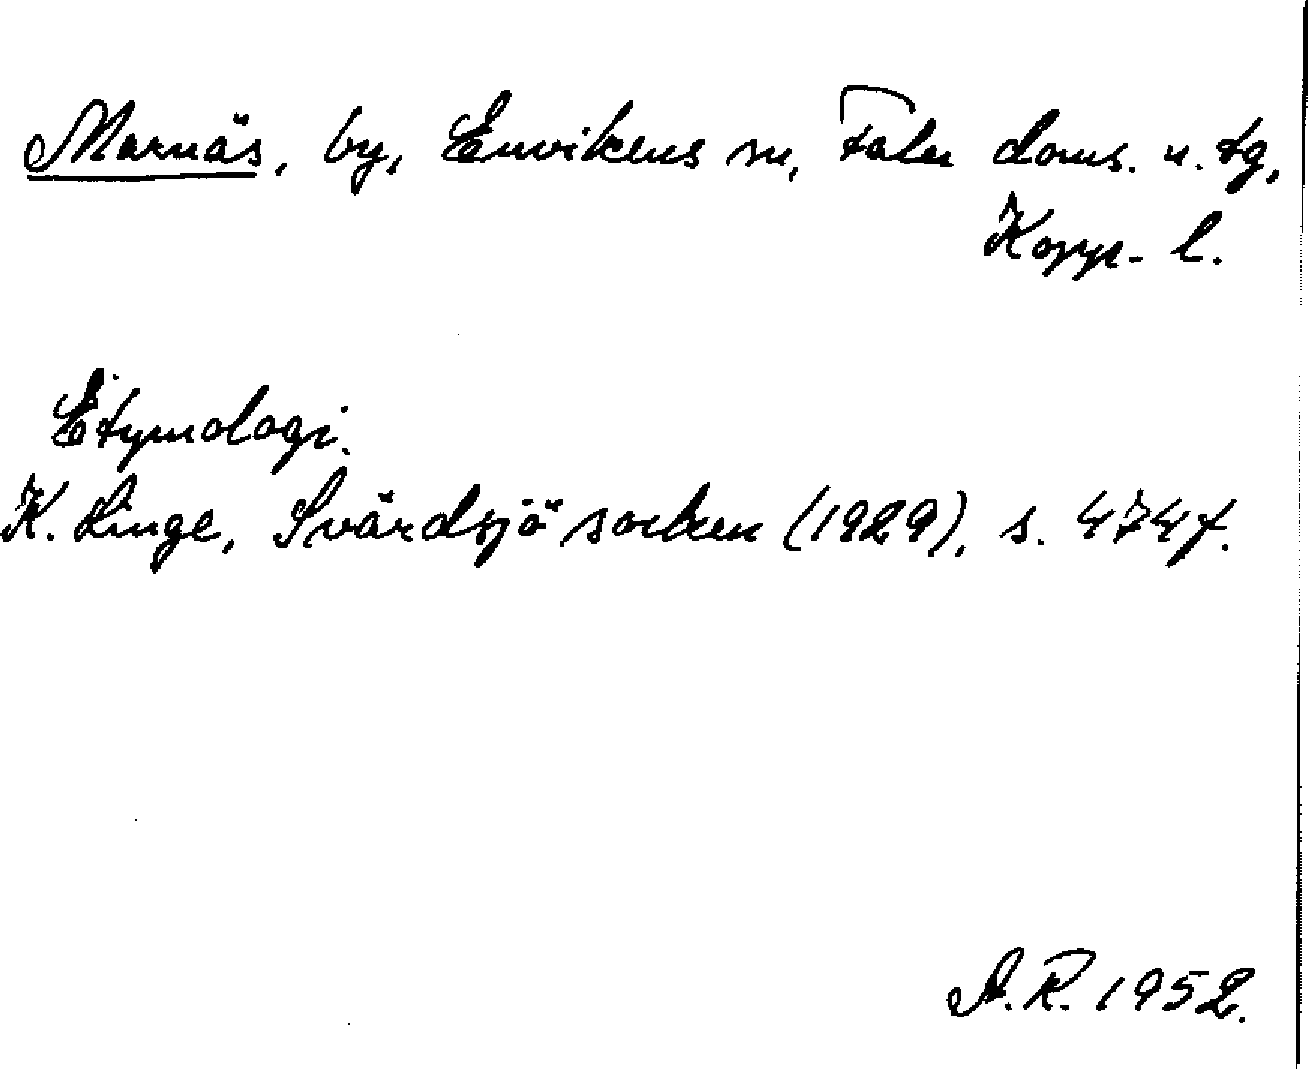 Marnäs, by, Envikens sn, Falu doms. o. tg,
Kopp. l.
Etymologi.
K. Linge, Svärdsjö socken (1929), s. 474f.
A.R. 1952.